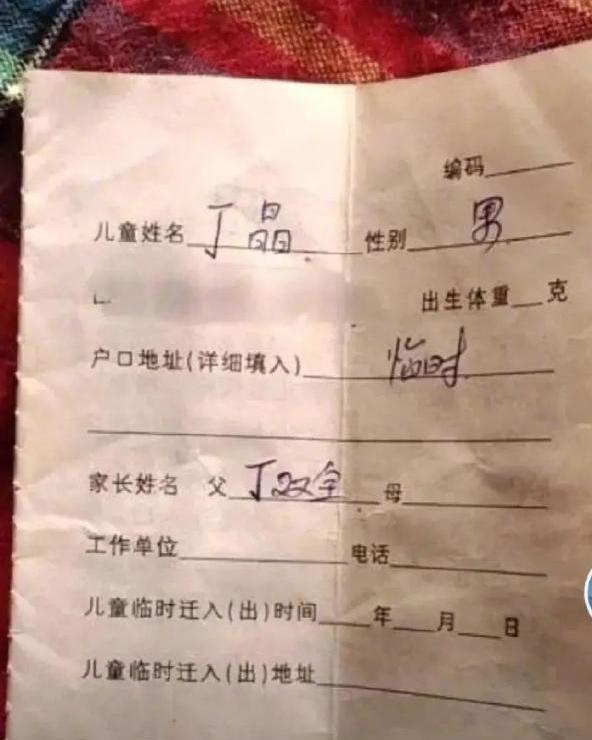 编码
儿童姓名 丁晶 性别 男
出生体重 克
户口地址(详细填入) 临时
家长姓名 父 丁双全 母
工作单位 电话
儿童临时迁入(出)时间 年 月 日
儿童临时迁入(出)地址